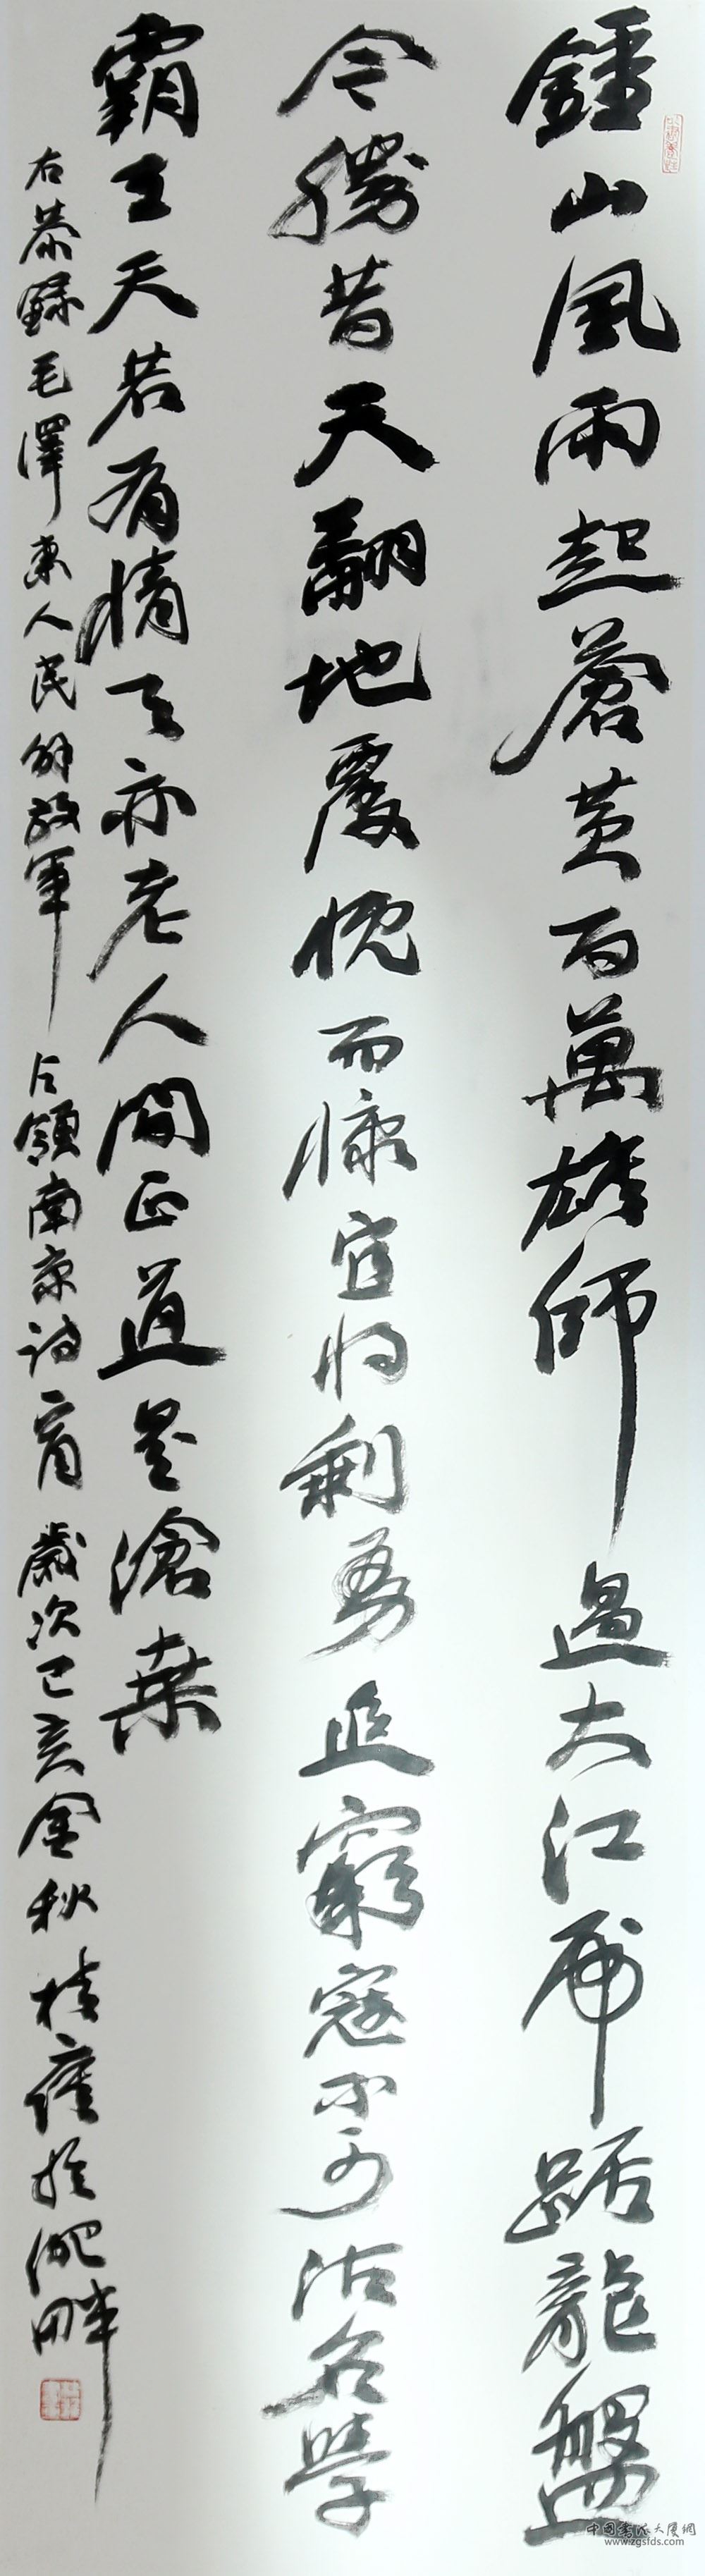 鍾山風雨起蒼黄百萬雄師過大江虎踞龍盤
今勝昔天翻地覆慨而慷宜将剩勇追窮寇不可沽名學
霸王天若有情天亦老人間正道是滄桑
右恭録毛澤東人民解放軍占領南京詩一首歲次己亥金秋桂庭於淝畔
中国书法大厦網
www.zgsfds.com